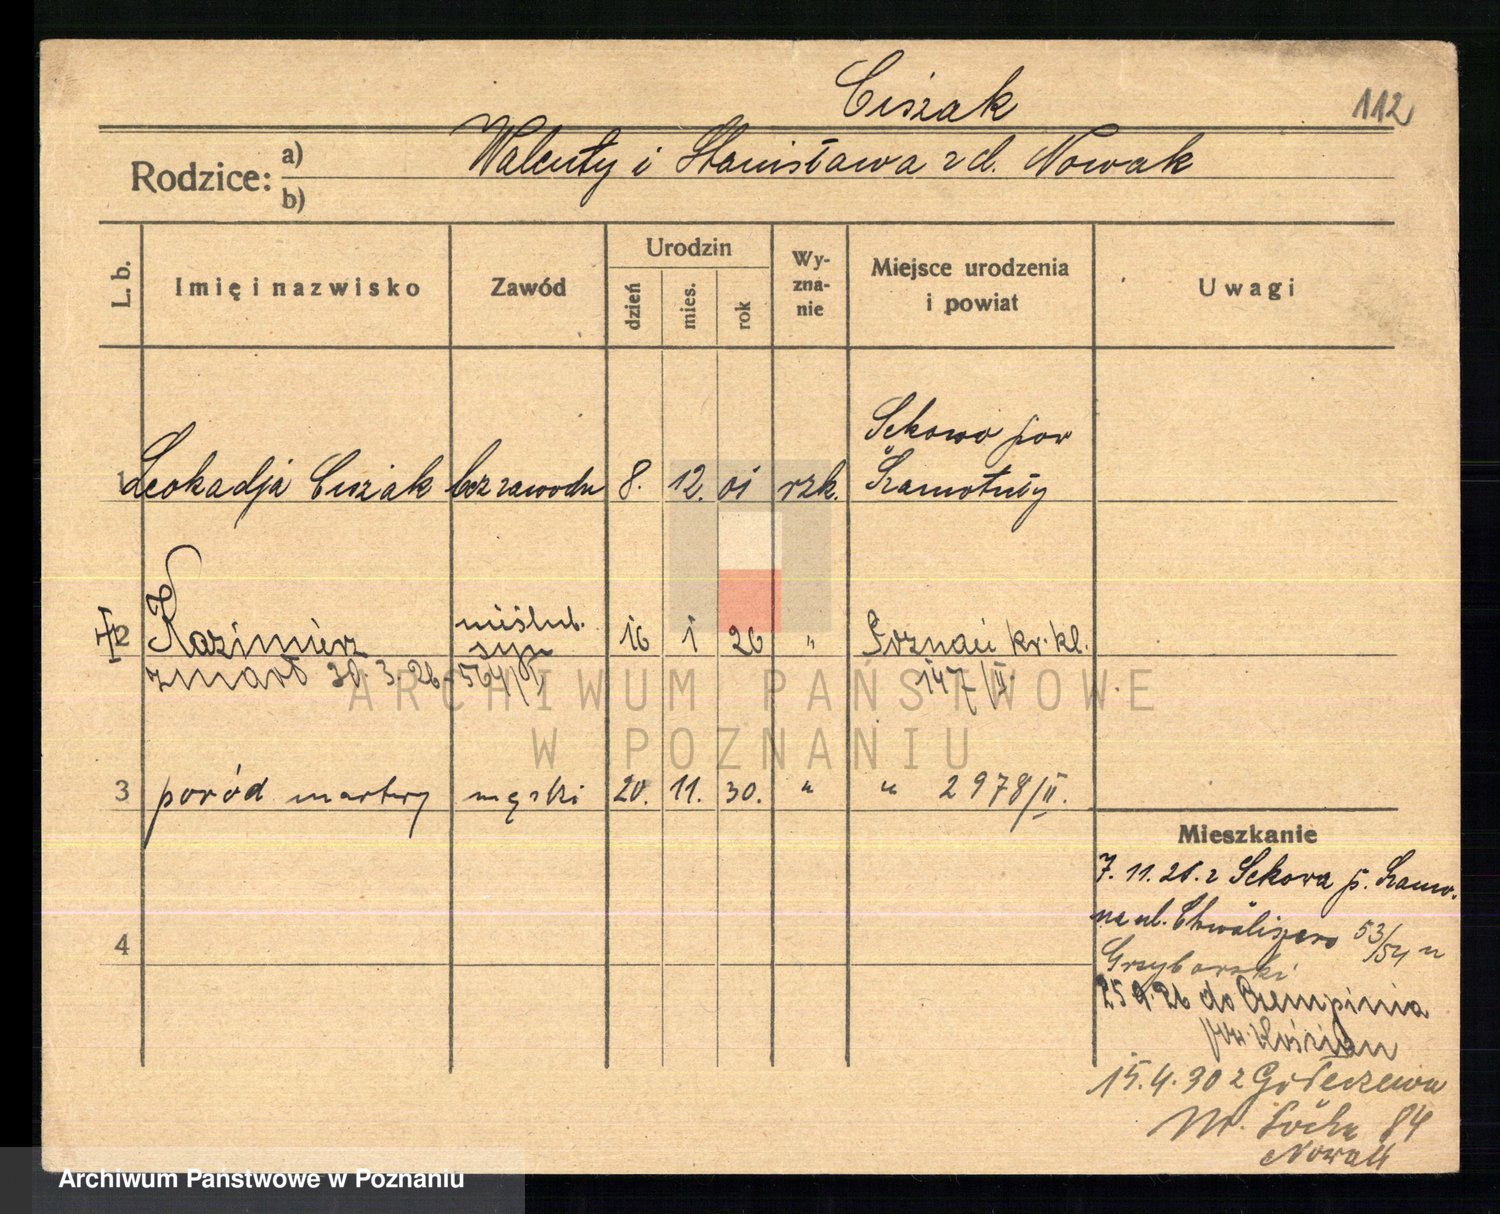 Ciszak 112
Rodzice: a) Walenty i Stanisława z d. Nowak
b)
L. b. Imię i nazwisko Zawód Urodzin dzień mies. rok Wyznanie Miejsce urodzenia i powiat Uwagi
Sekowo pow
1 Leokadja Ciszak bez zawodu 8. 12. 01 rzk. Szamotuły
nieślub.
2 Kazimierz syn 16 1 26 " Poznań kr. kl.
zmarł 30. 3. 26 - 564/II 147/II.
3 poród martwy męski 20. 11. 30. " " 2978/II.
Mieszkanie
7. 11. 25. z Sekowa p. Szamo.
na ul. Chwaliszewo 53/54 u
4
Grzyborski
25 9. 26 do Czempinia
pow. Kościan
15. 4. 30 z Gołeczewa
84
Nowak
ARCHIWUM PAŃSTWOWE
W POZNANIU
Archiwum Państwowe w Poznaniu